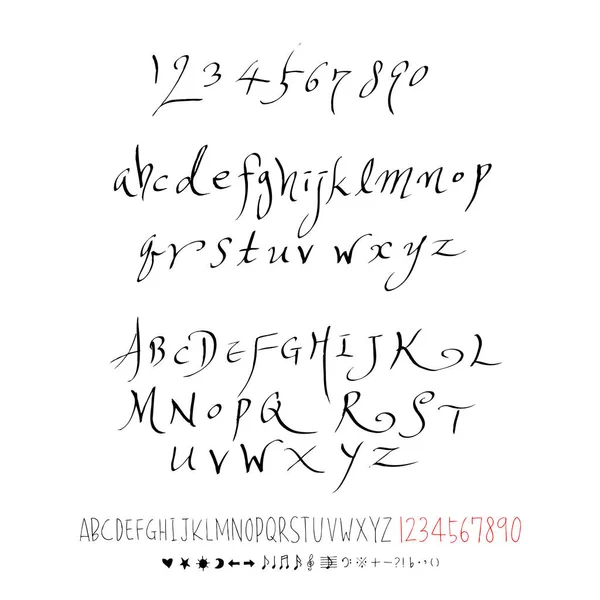 1234567890
abcdefghijklmnop
qrstuvwxyz
ABCDEFGHIJKL
MNOPQRST
UVWXYZ
ABCDEFGHIJKLMNOPQRSTUVWXYZ 1234567890
♥★☾←→♪♫𝄞※+−?!♭・,()